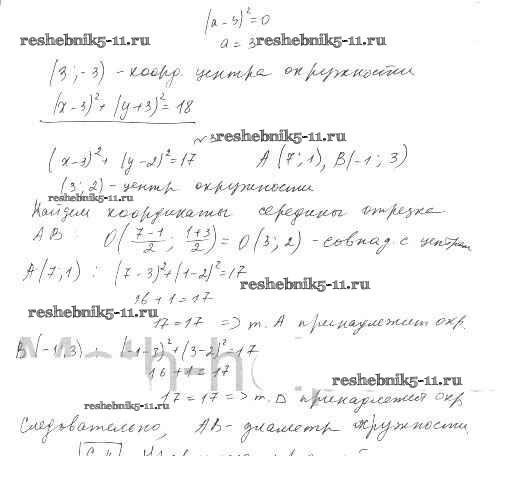 (a-3)²=0
reshebnik5-11.ru
a = 3 reshebnik5-11.ru
(3;-3) - коорд. центра окружности
(x-3)²+(y+3)²=18
№3 reshebnik5-11.ru
(x-3)²+(y-2)²=17 A(7;1), B(-1;3)
(3;2) - центр окружности
reshebnik5-11.ru
Найдем координаты середины отрезка
AB: O((7-1)/2; (1+3)/2) = O(3;2) - совпад. с центром
A(7;1): (7-3)²+(1-2)²=17
reshebnik5-11.ru
16+1=17
reshebnik5-11.ru
17=17 => т. A принадлежит окр.
B(-1;3): (-1-3)²+(3-2)²=17
16+1=17
reshebnik5-11.ru
17=17 => т. B принадлежит окр
reshebnik5-11.ru
Следовательно, AB - диаметр окружности.